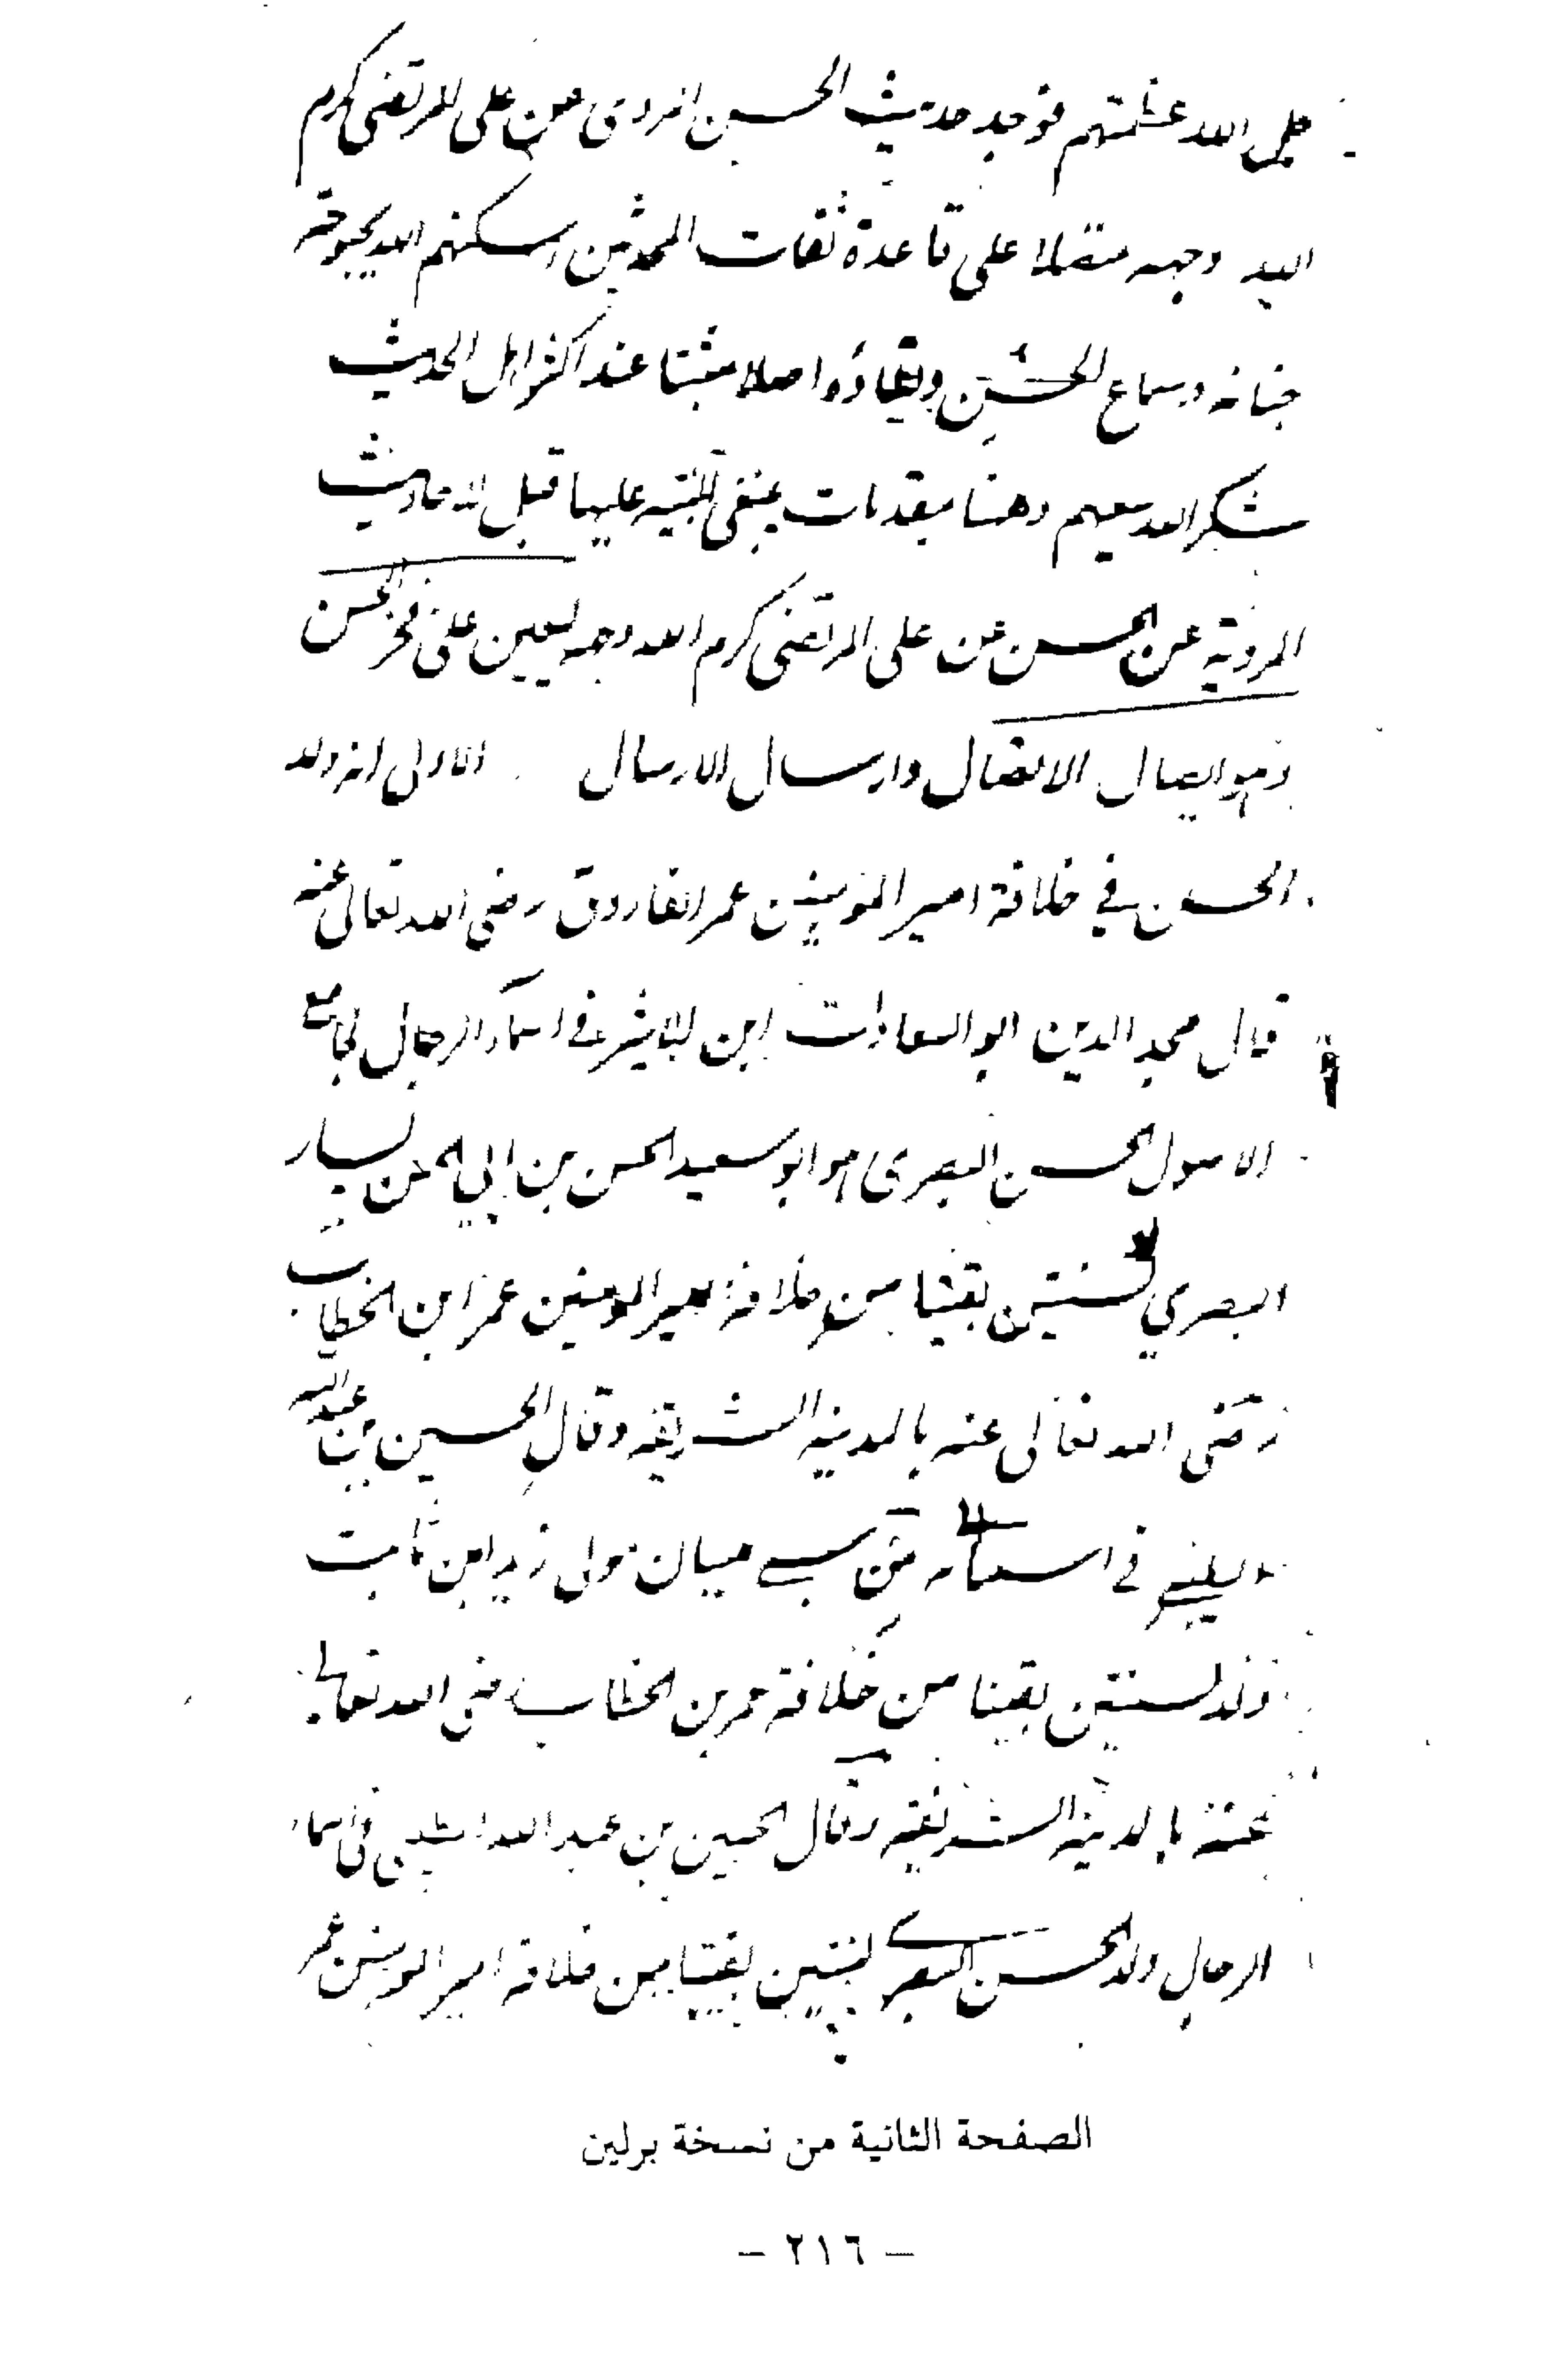 الله عظمتهم فوجد حديث الحسن المروى عن على المرتضى كرم
الله وجهه متصلا على قاعدة ثقات المحدثين اسكنهم الله بحبوحة
جنانه وسماع الحسن ولقاؤه اصلا مثبتا عند اكثر اهل الحديث
شكر الله سعيهم وهنا مقدمات ينبغي التنبيه عليها قبل الاحاديث
المروية عن الحسن عن على المرتضى كرم الله وجهه ليعين على فخر الحسن
وهو ايصال الاتصال وارسال الارسال الاولى انه ولد
الحسن في خلافة امير المؤمنين عمر الفاروق رضى الله تعالى عنه
قال مجد الدين ابو السعادات ابن الاثير في اسماء الرجال لجامع
الاصول الحسن البصرى هو ابو سعيد الحسن بن ابي الحسن يسار
البصري لسنتين بقيتا من خلافة امير المومنين عمر ابن الخطاب
رضى الله تعالى عنه بالمدينة الشريفه وقال الحسين بن عبد الله
في اسمائه من سبي ميسان مولى زيد ابن ثابت
ولد لسنتين بقيتا من خلافة عمر بن الخطاب رضى الله تعالى
عنه بالمدينة الشريفة وقال الحسين بن عبد الله الطيبي في اسماء
الرجال ولد الحسن البصرى لسنتين بقيتا من خلافة امير المومنين عمر
الصفحة الثانية من نسخة برلين
- ٢١٦ -